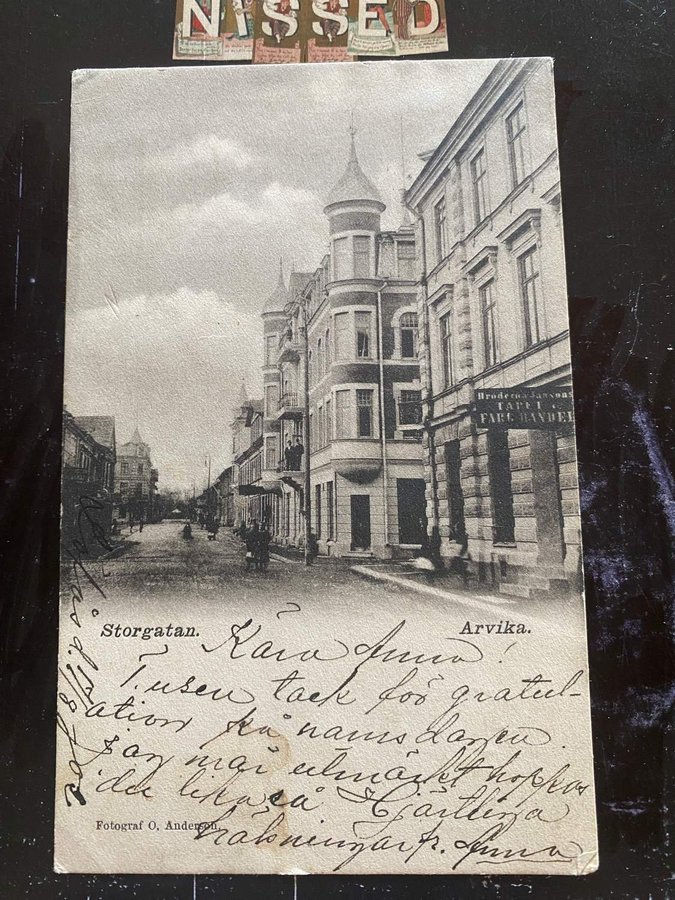 NISSED
Bröderna Jansons
TAPET
FÄRG HANDEL
Storgatan.
Arvika.
Kära Anna!
Tusen tack för gratul-
ation på namsdagen.
jag mår utmärkt hoppas
du likaså Hjärtliga
hälsningar fr. Anna
Fotograf O, Anderson,